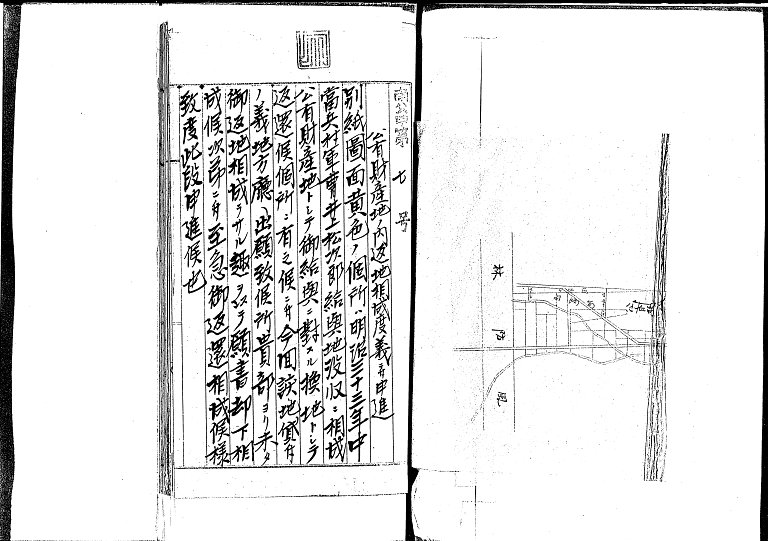 七号
公有財産地ノ内返地相成度義ニ付申進
別紙圖面黄色ノ個所ハ明治三十三年中
當兵村軍曹井上松次郎給與地没収ニ相成
公有財産地トシテ御給與ニ對スル換地トシテ
返還候個所ニ有之候ニ付今回該地貸付
ノ義地方廳ヘ出願致候所貴部ヨリ未タ
御返地相成ラサル趣ヲ以テ願書却下相
成候次第ニ付至急御返還相成候様
致度此段申進候也